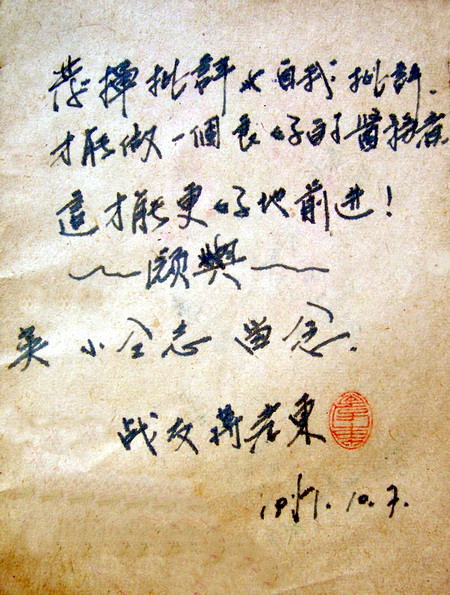 發揮批評与自我批評.
才能做一個良好的醫務
這才能更好地前进!
願與
英小仝志 留念.
战友 東
10.7.